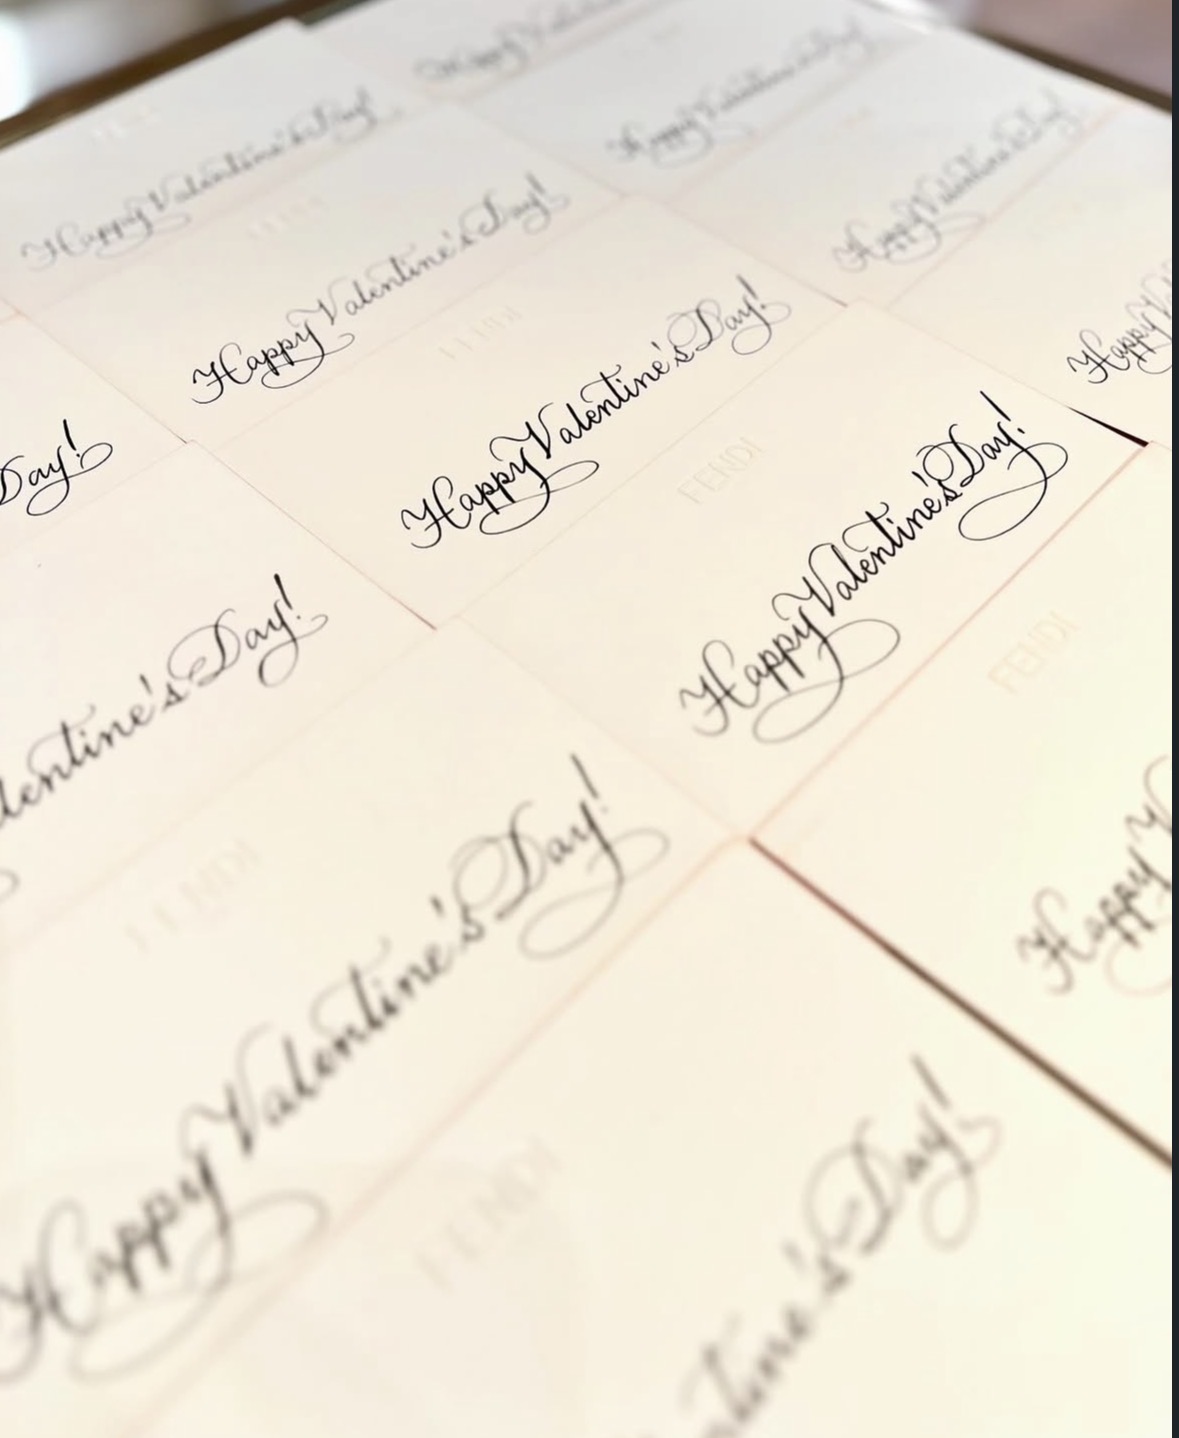 Happy Valentine's Day!
Happy Valentine's Day!
Happy Valentine's Day!
Happy Valentine's Day!
Happy Valentine's Day!
Happy
Happy Valentine's Day!
FENDI
Happy Valentine's Day!
FENDI
Day!
Happy Valentine's Day!
FENDI
Day!
FENDI
Happy Valentine's Day!
Happy
FENDI
Day!